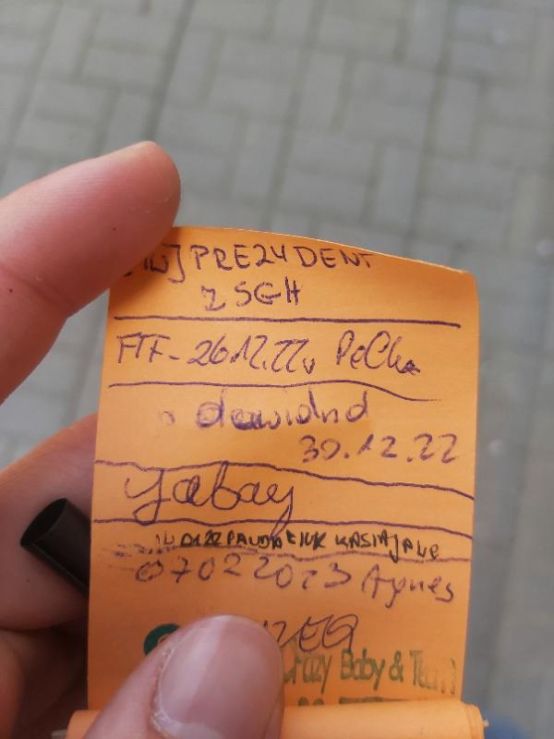 PREZYDENT
Z SGH
FTF- 26.12.22 PeCha
dawidnd
30.12.22
Yabay
07022023 Agnes
Crazy Baby & Team